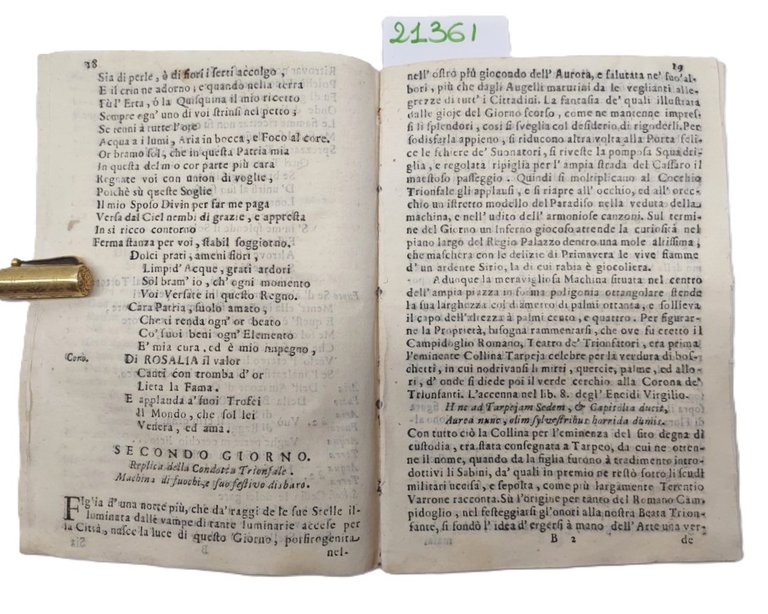 21361
28
Sia di perle, ò di fiori i serti accolgo,
E il crin ne adorno; e quando nella terra
Fù l'Erta, ò la Quisquina il mio ricetto
Sempre ogn' uno di voi strinsi nel petto;
Se tenni à tutte l'ore
Acqua a i lumi, Aria in bocca, e Foco al core.
Or bramo sol, che in questa Patria mia
In questa del mio cor parte più cara
Regnate voi con union di voglie,
Poichè sù queste Soglie
Il mio Sposo Divin per far me paga
Versa dal Ciel nembi di grazie, e appresta
In sì ricco contorno
Ferma stanza per voi, stabil soggiorno.
Dolci prati, ameni fiori,
Limpid' Acque, grati ardori
Sol bram' io, ch'ogni momento
Voi Versate in questo Regno.
Cara Patria, suolo amato,
Che ti renda ogn' or beato
Co' suoi beni ogn' Elemento
E' mia cura, ed è mio impegno,
Coro. Di ROSALIA il valor
Canti con tromba d' or
Lieta la Fama.
E applauda a' suoi Trofei
Il Mondo, che sol lei
Venera, ed ama.
SECONDO GIORNO.
Replica della Condotta Trionfale.
Machina di fuochi, e suo festivo disbaro.
Figlia d'una notte più, che da' raggi de le sue Stelle il-
luminata dalle vampe di tante luminarie accese per
la Città, nasce la luce di questo Giorno, porfirogenita
B
nel-
19
nell' ostro più giocondo dell' Aurora, e salutata ne' suo' al-
bori, più che dagli Augelli matutini da le veglianti alle-
grezze di tutt' i Cittadini. La fantasia de' quali illustrata
dalle gioje del Giorno scorso, come ne mantenne impres-
si li splendori, così si sveglia col desiderio di rigoderli. Per
sodisfarla appieno, si riducono altra volta alla Porta feli-
ce le schiere de' Suonatori, si riveste la pomposa Squadri-
glia, e regolata ripiglia per l' ampia strada del Cassaro il
maestoso passeggio. Quindi si moltiplicano al Cocchio
Trionfale gli applausi, e si riapre all' occhio, ed all' orec-
chio un istretto modello del Paradiso nella veduta della
machina, e nell' udito dell' armoniose canzoni. Sul termi-
ne del Giorno un Inferno giocoso attrende la curiosità nel
piano largo del Regio Palazzo dentro una mole altissima,
che maschera con le delizie di Primavera le vive fiamme
d' un ardente Sirio, la di cui rabia è giocoliera.
A dunque la meravigliosa Machina situata nel centro
dell' ampia piazza in forma poligonia ottangolare stende
la sua larghezza col diametro di palmi ottanta, e sollieva
il capo dell' altezza à palmi cento, e quattro. Per figurar-
ne la Proprietà, bisogna rammentarsi, che ove fu eretto il
Campidoglio Romano, Teatro de' Trionfatori, era prima
l'eminente Collina Tarpeja celebre per la verdura di bos-
chetti, in cui nodrivansi li mirti, quercie, palme, ed allo-
ri, d' onde si diede poi il verde cerchio alla Corona de'
Trionfanti. L'accenna nel lib. 8. degl' Eneidi Virgilio.
Hinc ad Tarpejam Sedem, & Capitolia ducit,
Aurea nunc, olim sylvestribus horrida dumis.
Con tutto ciò la Collina per l'eminenza del sito degna di
custodia, era stata consegnata a Tarpeo, da cui ne otten-
ne il nome, quando da la figlia furono à tradimento intro-
dottivi li Sabini, da' quali in premio ne restò sotto li scudi
militari uccisa, e sepolta, come più largamente Terentio
Varrone racconta. Sù l'origine per tanto del Romano Cam-
pidoglio, nel festeggiarsi gl'onori alla nostra Beata Trion-
fante, si fondò l' idea d'ergersi à mano dell' Arte una ver-
B 2
de